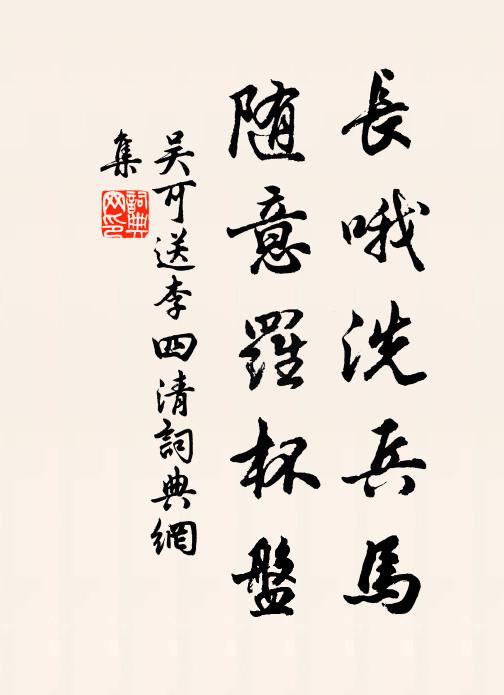 長哦洗兵馬
随意羅杯盤
吴可送李四清詞典網
集
詞典网印